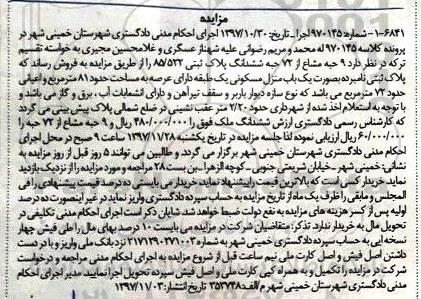 مزایده
۱-۶۸۴۱- شماره: ۹۷۰۱۴۵اجرا- تاریخ: ۱۳۹۷/۱۰/۳۰ اجرای احکام مدنی دادگستری شهرستان خمینی شهر در
پرونده کلاسه ۹۷۰۱۴۵ له محمد و مریم رضوانی علیه شهناز عسگری و غلامحسین مجیری به خواسته تقسیم
ترکه در نظر دارد ۹ حبه مشاع از ۷۲ حبه ششدانگ پلاک ثبتی ۸۵/۵۳۳ را از طریق مزایده به فروش رساند که
پلاک ثبتی نامبرده بصورت یک باب منزل مسکونی یک طبقه دارای عرصه به مساحت حدود ۸۱ مترمربع و اعیانی
حدود ۷۲ مترمربع می باشد که نوع سازه دیوار باربر و سقف تیرآهن و دارای انشعابات آب ، برق و گاز می باشد و
با توجه به استعلام اخذ شده از شهرداری حدود ۲/۲۰ متر عقب نشینی در ضلع شمالی پلاک پیش بینی می گردد
که کارشناس رسمی دادگستری ارزش ششدانگ ملک فوق را ۴۸۰/۰۰۰/۰۰۰ ریال و ۹ حبه مشاع از ۷۲ حبه را
۶۰/۰۰۰/۰۰۰ ریال ارزیابی نموده لذا جلسه مزایده در تاریخ یکشنبه ۱۳۹۷/۱۱/۲۸ ساعت ۹ صبح در محل اجرای
احکام مدنی دادگستری شهرستان خمینی شهر برگزار می گردد و طالبین می توانند ۵ روز قبل از روز مزایده به
نشانی: خمینی شهر - خیابان شریعتی جنوبی - کوچه الزهرا - بن بست ۲۸ مراجعه و مورد مزایده را از نزدیک بازدید
نماید. خریدار کسی است که بالاترین قیمت را پیشنهاد نماید، خریدار می بایستی ده درصد قیمت پیشنهادی را فی
المجلس و مابقی را ظرف یک ماه از تاریخ مزایده به حساب سپرده دادگستری واریز نماید در غیر اینصورت ده درصد
اولیه پس از کسر هزینه های مزایده به نفع دولت ضبط خواهد شد. شایان ذکر است اجرای احکام مدنی تکلیفی در
تحویل مال به خریدار ندارد. تذکر: متقاضیان شرکت در مزایده می بایست ۱۰ درصد بهای مال را طی فیش چهار
نسخه ایی به حساب سپرده دادگستری خمینی شهر به شماره ۲۱۷۱۲۹۰۲۷۱۰۰۳ نزد بانک ملی واریز و با در دست
داشتن اصل فیش و اصل کارت ملی نیم ساعت قبل از شروع مزایده به اجرای احکام مدنی مراجعه و درخواست
شرکت در مزایده را تکمیل و به همراه کپی کارت ملی و اصل فیش سپرده تحویل اجرا نمایید. مدیر اجرای احکام
مدنی دادگستری شهرستان خمینی شهر م الف: ۳۵۳۷۴۸ تاریخ انتشار: ۱۳۹۷/۱۱/۰۳